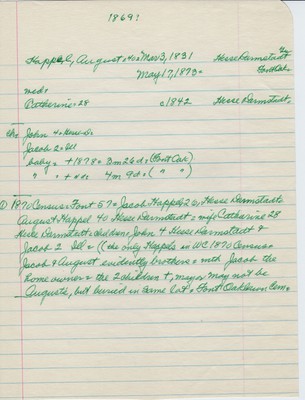 1869:
Happel, August 40 = Mar 3, 1831 Hesse Darmstadt
May 17, 1873 = Font Oak
med =
Catherine = 28 c1842 Hesse Darmstadt =
chn John 4 =
Jacob 2 = Ill
baby = + 1878 = 3m 26d = (Font Oak)
" = + = 4m 9d = ( " " )
① 1870 Census = Font 57 = Jacob Happel 26, Hesse Darmstadt =
August Happel 40 Hesse Darmstadt = wife Catharine 28
Hesse Darmstadt = children, John 4 Hesse Darmstadt &
Jacob 2 Ill = (the only Happels in WC 1870 Census =
Jacob & August evidently brothers = with Jacob the
home owner & the 2 children +, may or may not be
Augusts, but buried in same lot = Font Oaklawn Cem =